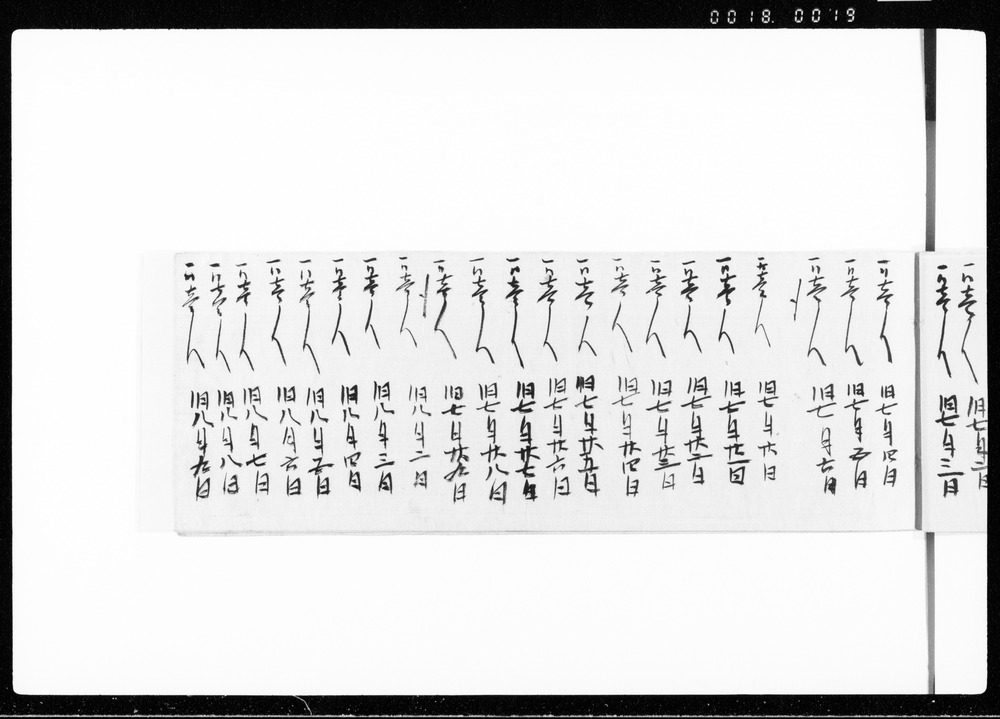 0018. 0019
一 壱人 旧七月二日
一 壱人 旧七月三日
一 壱人 旧七月四日
一 壱人 旧七月五日
一 壱人 旧七月六日
一 壱人 旧七月廿日
一 壱人 旧七月廿一日
一 壱人 旧七月廿二日
一 壱人 旧七月廿三日
一 壱人 旧七月廿四日
一 壱人 旧七月廿五日
一 壱人 旧七月廿六日
一 壱人 旧七月廿七日
一 壱人 旧七月廿八日
一 壱人 旧七月廿九日
一 壱人 旧八月二日
一 壱人 旧八月三日
一 壱人 旧八月四日
一 壱人 旧八月五日
一 壱人 旧八月六日
一 壱人 旧八月七日
一 壱人 旧八月八日
一 壱人 旧八月九日